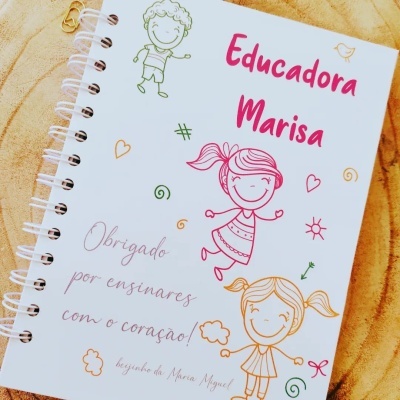 Educadora
Marisa
Obrigado
por ensinares
com o coração!
beijinho da Maria Miguel